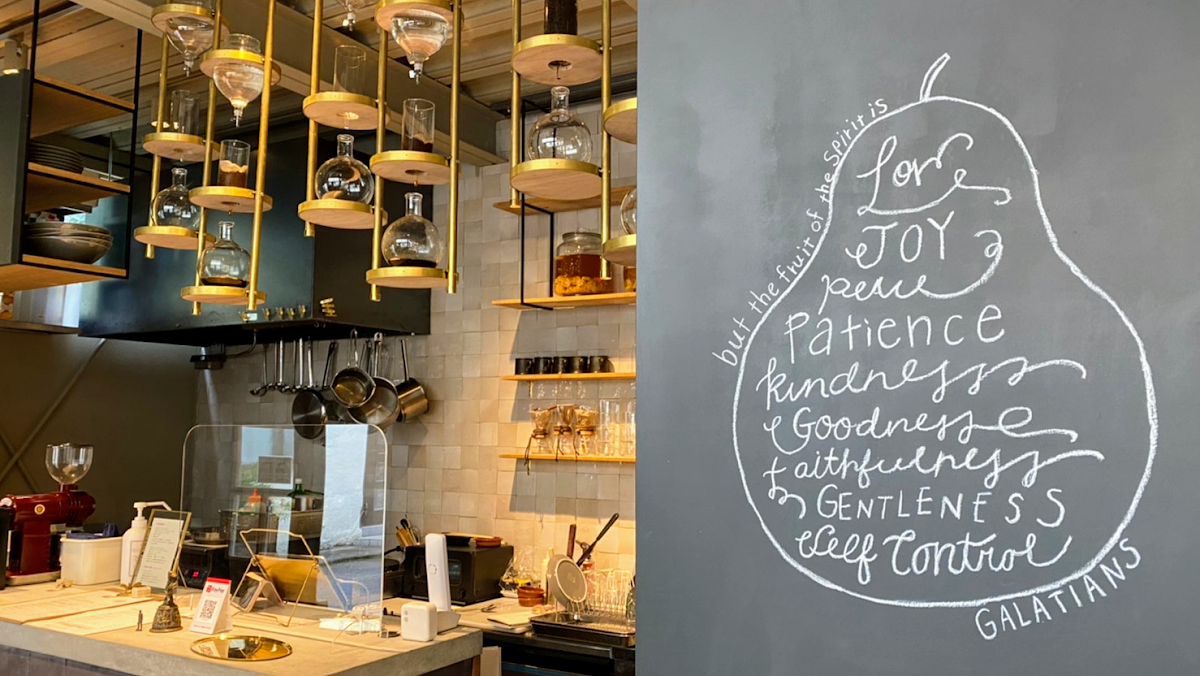 but the fruit of the Spirit is
Love
JOY
peace
Patience
kindness
Goodness
faithfulness
GENTLENESS
Self Control
GALATIANS